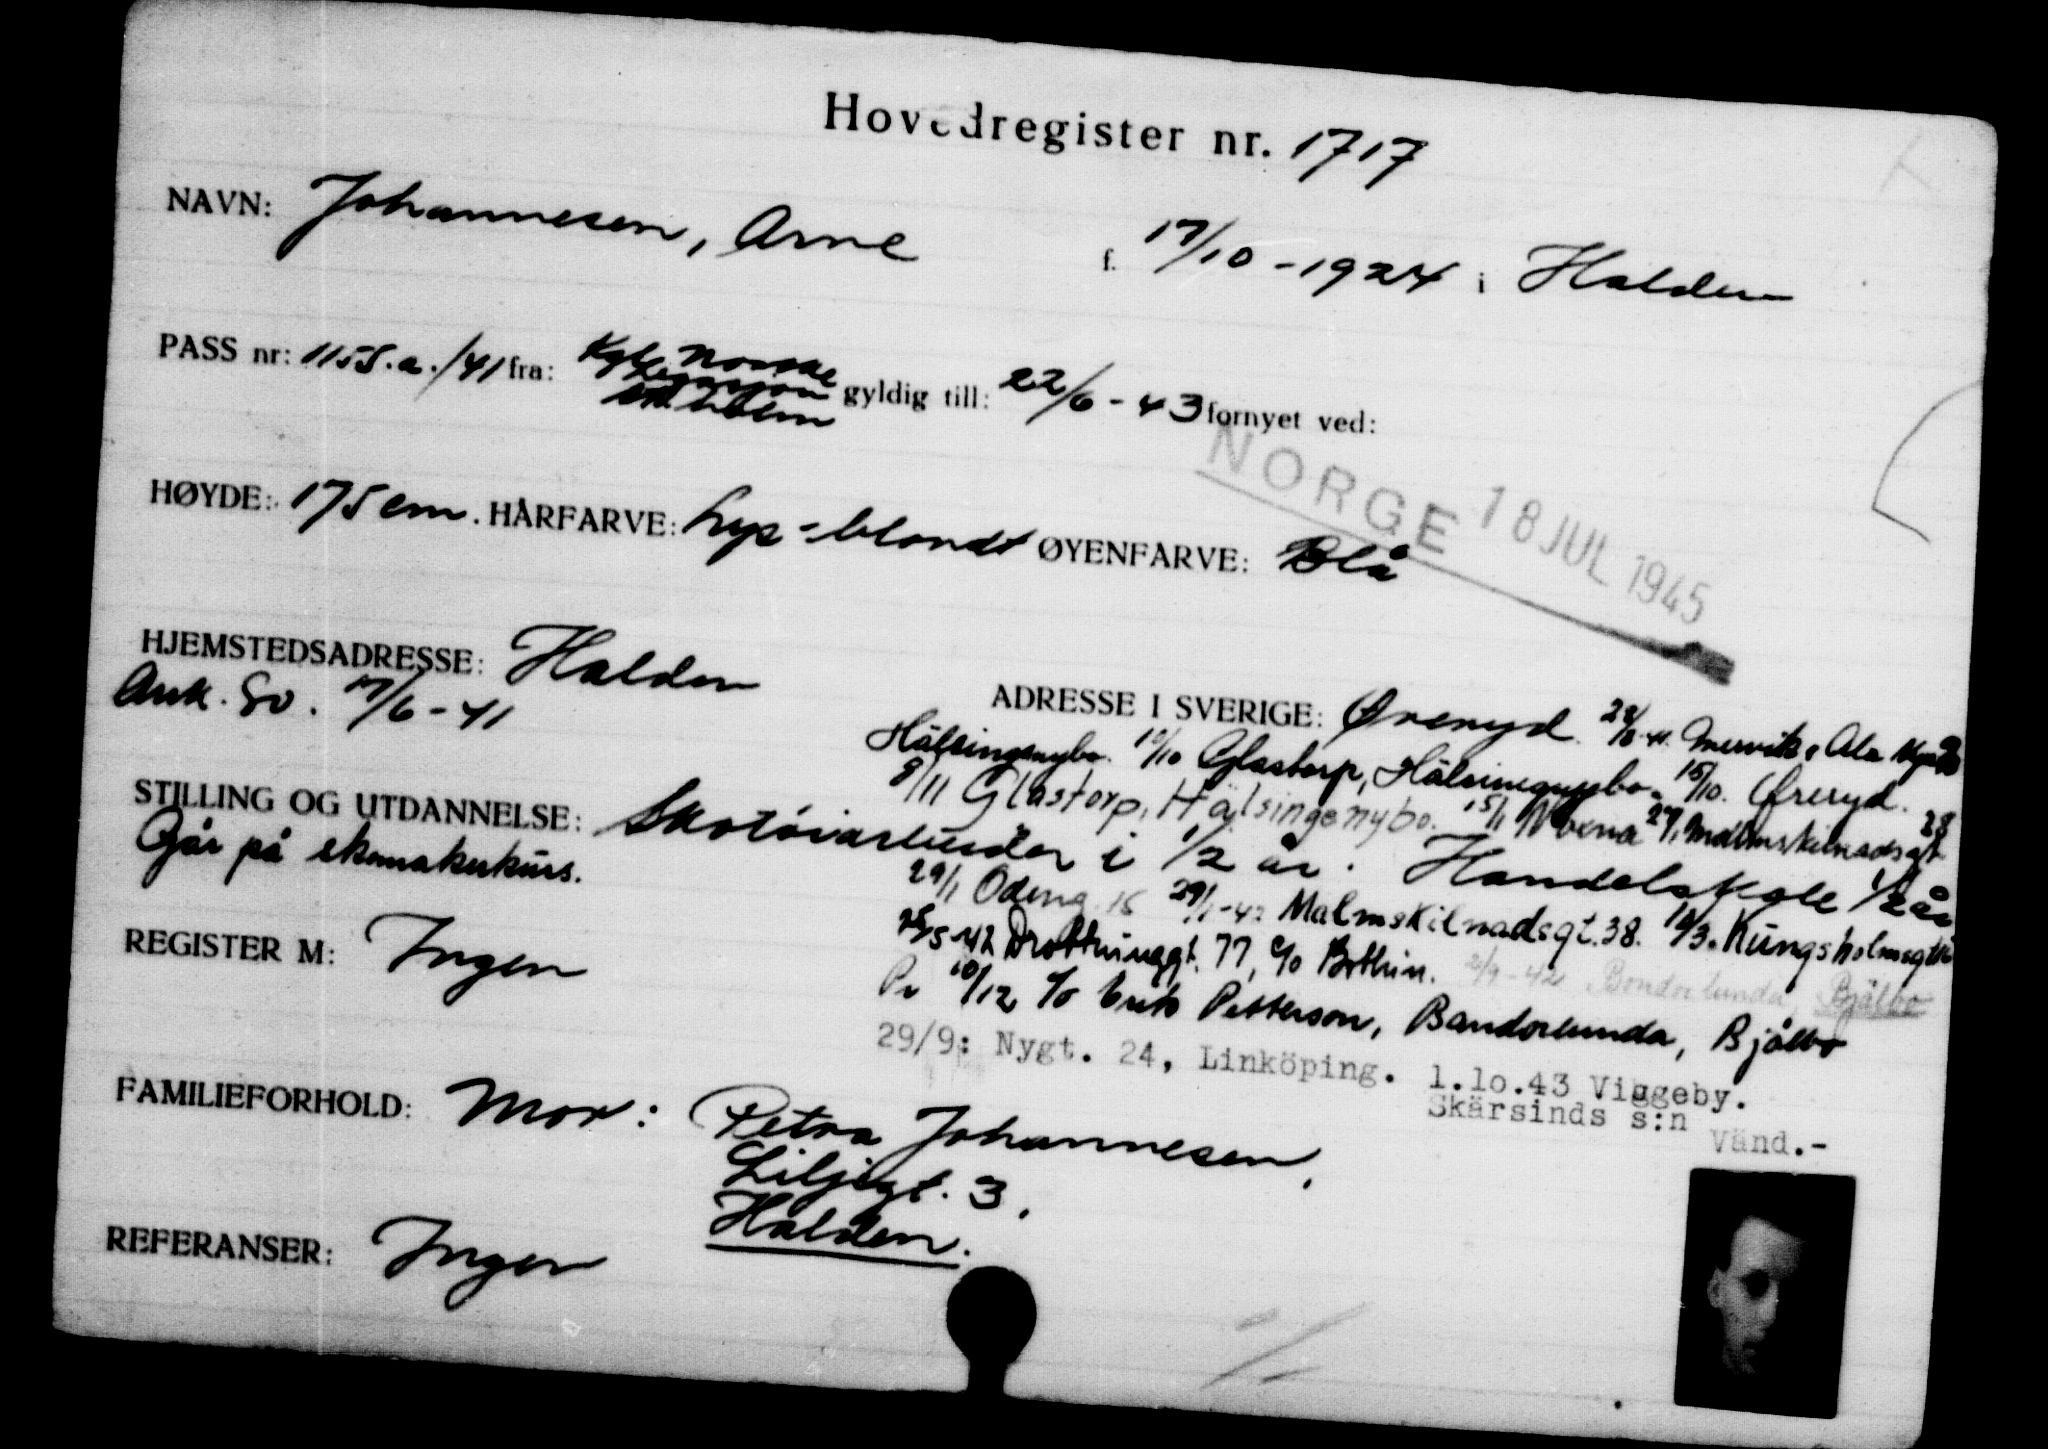 Hovedregister nr. 1717
NAVN: Johannesen, Arne f. 17/10 - 1924 i Halden
PASS nr: 1155.a./41 fra: Kgl. Norske
Legasjon
Stholm gyldig till: 22/6 - 43 fornyet ved:
NORGE 18 JUL 1945
HØYDE: 175 cm. HÅRFARVE: Lys-blondt ØYENFARVE: Blå
HJEMSTEDSADRESSE: Halden
Ank. Sv. 17/6 - 41
ADRESSE I SVERIGE: Øreryd.
Hälsingenybo. 10/10 Glastorp, Hälsingenybo. 15/10. Øreryd.
8/11 Glastorp, Hälsingenybo. 15/1 Norna 27/1 Malmskilnadsgt
STILLING OG UTDANNELSE: Skotøiarbeider i 1/2 år. Handelskole 1/2 år
Går på skomakerkurs.
29/1 Odeng. 18 29/1-42 Malmskilnadsgt. 38. 10/3. Kungsholmsgt
25/5-42 Drottninggt. 77, c/o Bothin. 2/9-42 Bondorlunda, Bjälbo
REGISTER M: Ingen
Pr 10/12 c/o Erik Petterson, Bandorlunda, Bjälbo
29/9: Nygt. 24, Linköping. 1.10.43 Viggeby.
Skärsinds s:n
Vänd.-
FAMILIEFORHOLD: Mor: Petra Johannesen,
Liljegt. 3,
Halden.
REFERANSER: Ingen